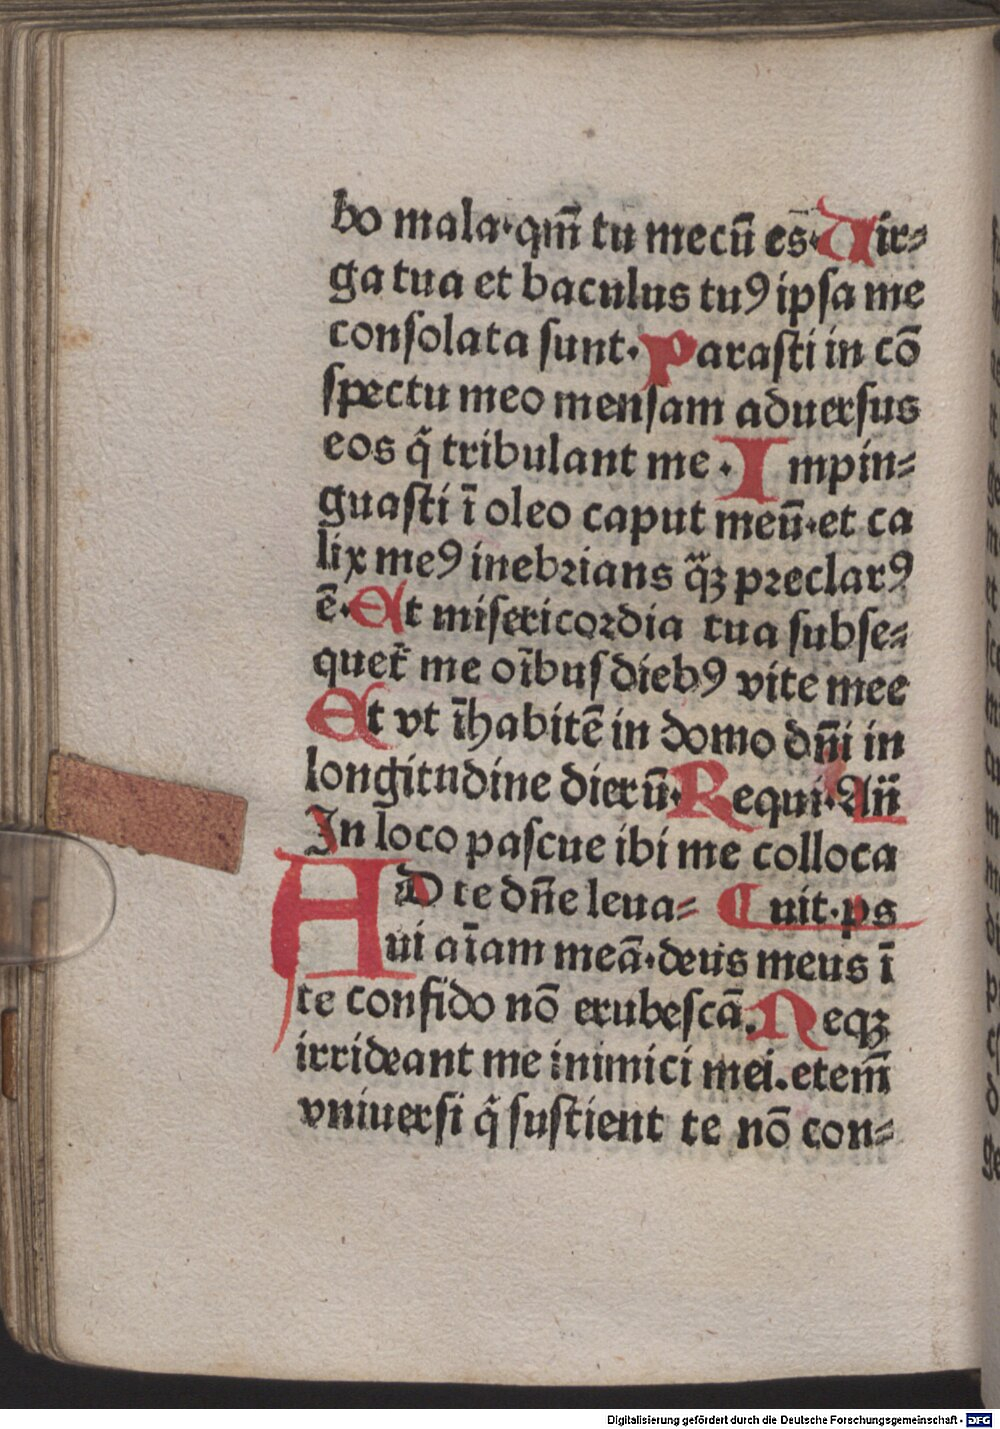 bo mala·qm̄ tu mecū es·Uir⸗
ga tua et baculus tuꝰ ipſa me
conſolata ſunt·Paraſti in cō
ſpectu meo menſam aduerſus
eos q̄ tribulant me·Impin⸗
guaſti ī oleo caput meū·et ca
lix meꝰ inebꝛians q̄ꝫ pꝛeclarꝰ
ē·Et miſericoꝛdia tua ſubſe⸗
quet᷑ me oı̄buſ diebꝰ vite mee
Et vt īhabitē in domo dn̄i in
longitudine dierū·Requi·Aīı
In loco paſcue ibi me colloca
AD te dn̄e leua⸗ Cuit·ps
ui aı̄am meā·deus meus ī
te confido nō erubeſcā.Neqꝫ
irrideant me inimici mei.etem̄
vniuerſi q̄ ſuſtient te nō con⸗
Digitalisierung gefördert durch die Deutsche Forschungsgemeinschaft · DFG